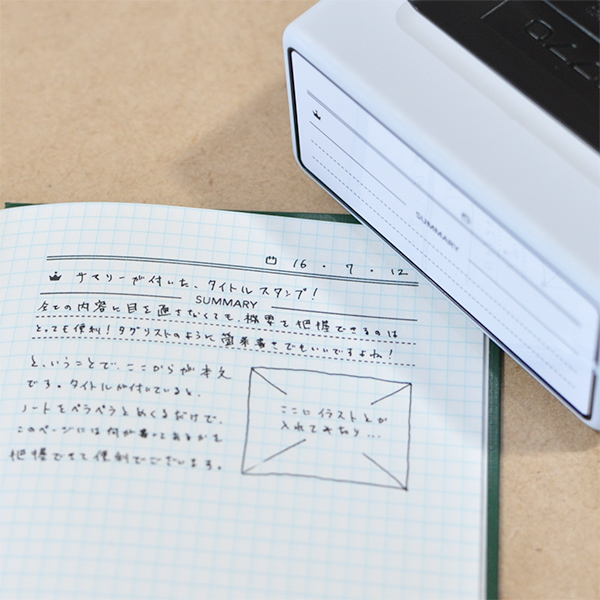 16 . 7 . 12
サマリーが付いた、タイトルスタンプ!
SUMMARY
全ての内容に目を通さなくても、概要で把握できるのは
とっても便利!タグリストのように箇条書きでもいいですよね!
と、いうことで、ここからが本文
です。タイトルが付いていると、
ノートをペラペラとめくるだけで、
このページには何が書いてあるかを
把握できて便利でございます。
ここにイラストとか
入れてみたり…
SUMMARY